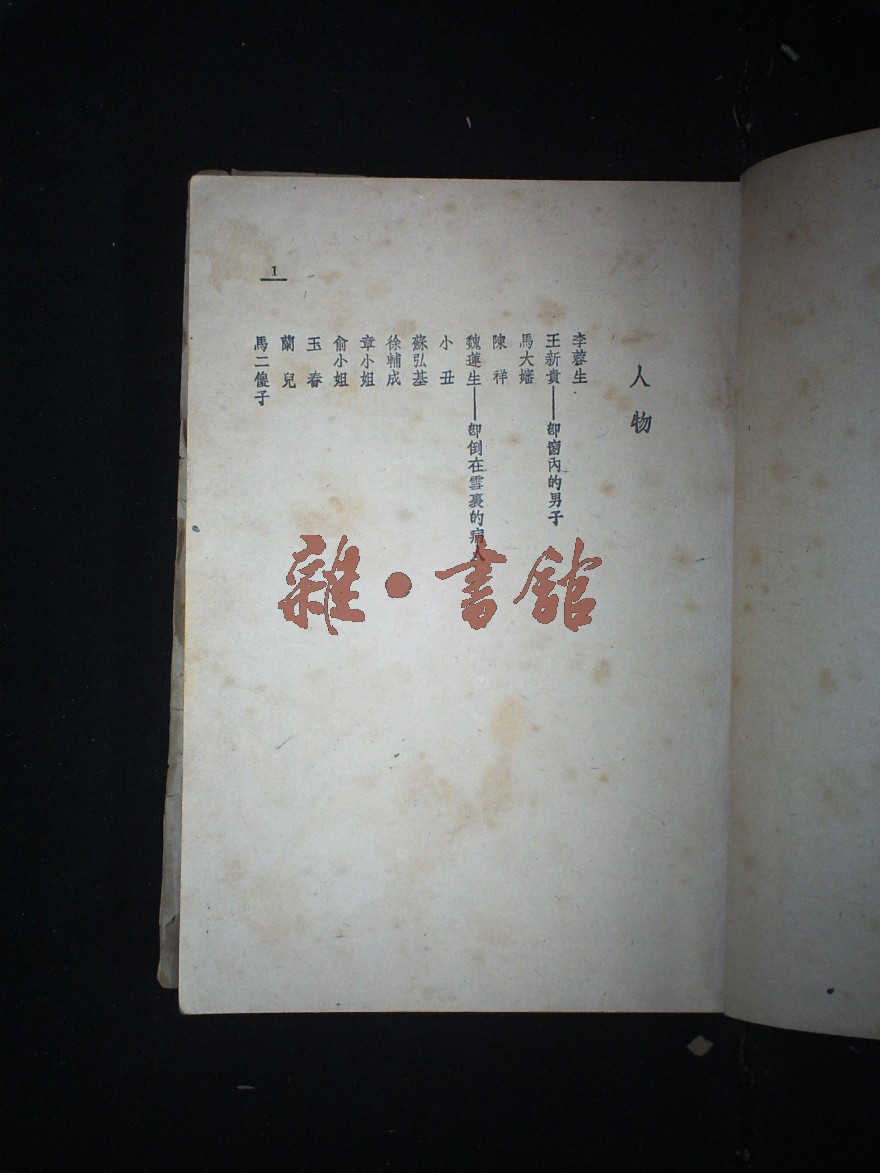 1
人物
李蓉生
王新貴——卽窗內的男子
馬大嬸
陳祥
魏蓮生——卽倒在雪裏的病人
小丑
蘇弘基
徐輔成
章小姐
俞小姐
玉春
蘭兒
馬二傻子
雜·書館